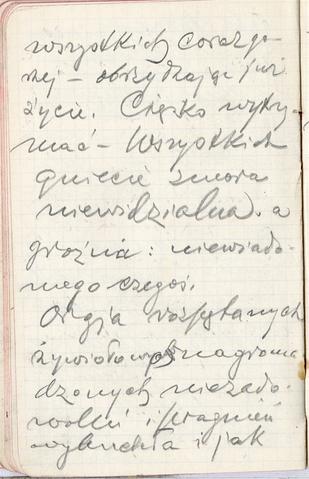 wszystkich coraz go-
rzej – obrzydzając już
życie. Ciężko wytrzy-
mać – Wszystkich
gniecie zmora
niewidzialna, a
groźna: niewiado-
mego czegoś.
Orgja rozpętanych
żywiołów, nagroma
dzonych niezado-
woleń i pragnień
wybucha i jak